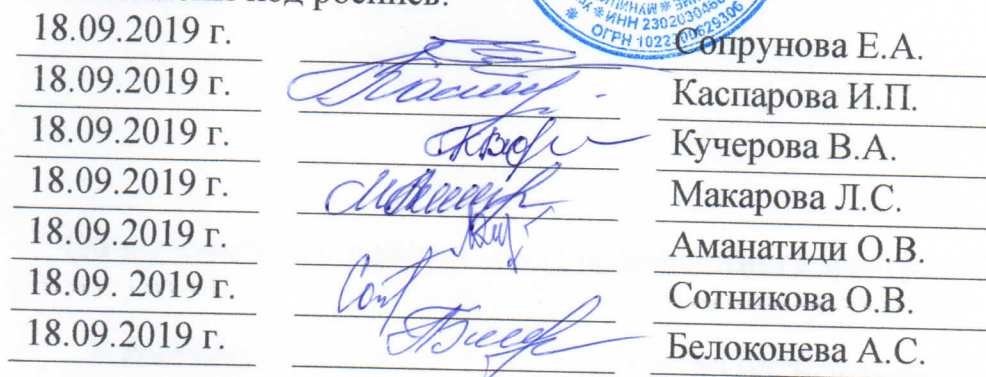 под роспись:
ИНН 2302030460
ОГРН 1022300629306
18.09.2019 г. Сопрунова Е.А.
18.09.2019 г. Каспарова И.П.
18.09.2019 г. Кучерова В.А.
18.09.2019 г. Макарова Л.С.
18.09.2019 г. Аманатиди О.В.
18.09. 2019 г. Сотникова О.В.
18.09.2019 г. Белоконева А.С.